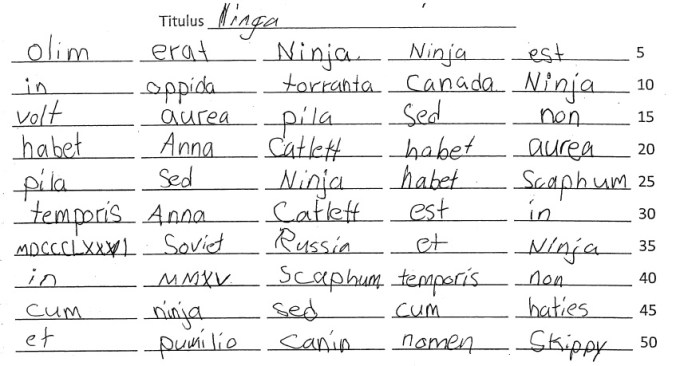 Titulus Ninga
olim erat Ninja. Ninja est 5
in oppida torranta Canada Ninja 10
volt aurea pila Sed non 15
habet Anna Catlett habet aurea 20
pila Sed Ninja habet Scaphum 25
temporis Anna Catlett est in 30
Soviet Russia et Ninja 35
in MMXV Scaphum temporis non 40
cum ninja sed cum haties 45
et pumilio canin nomen Skippy 50